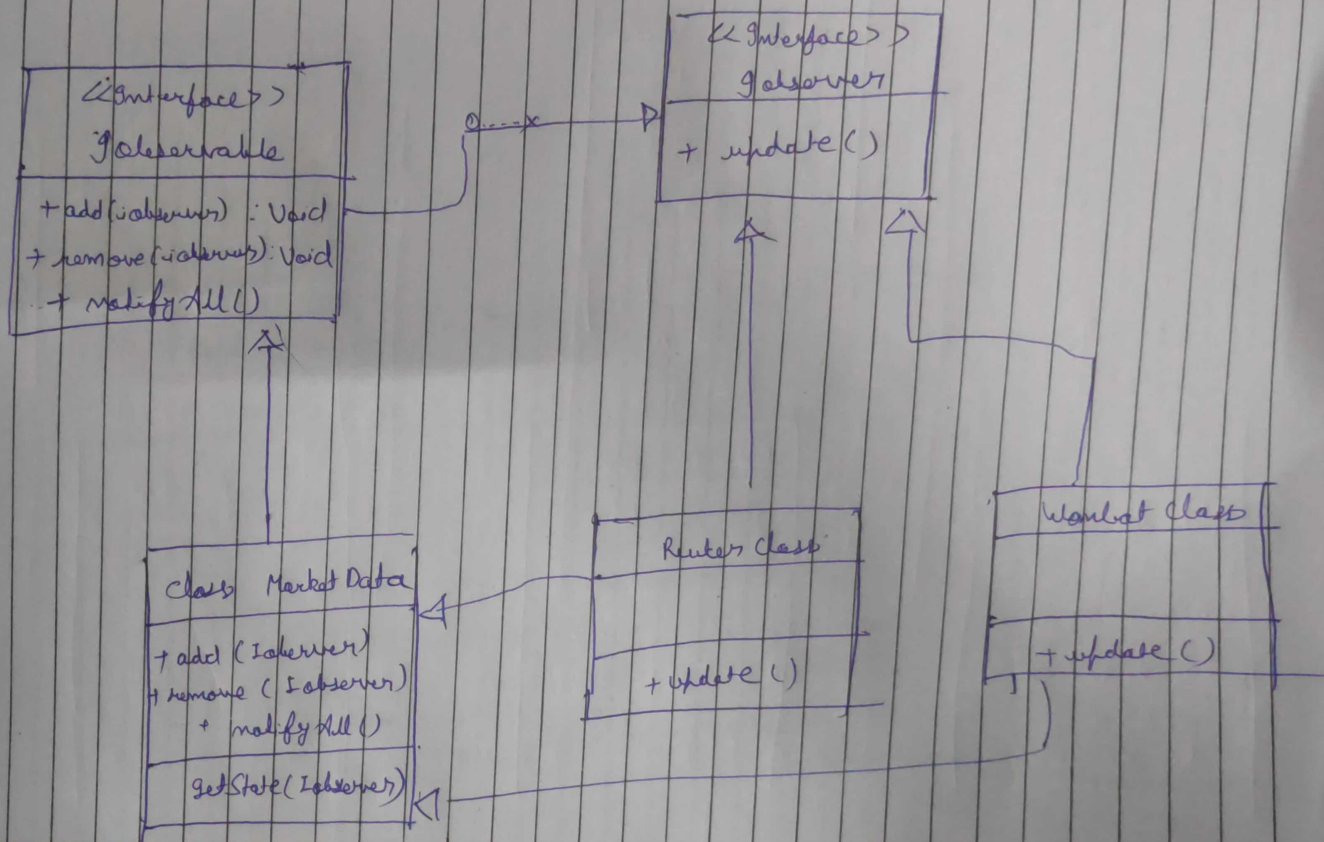 <<Interface>>
Iobservable
+ add(iobserver) : Void
+ remove(iobserver): Void
+ notifyAll()
<<Interface>>
Iobserver
+ update()
0.....*
class MarketData
+ add (Ioberver)
+ remove (Iobserver)
+ notifyAll()
getState(Iobserver)
Reuters Class
+ update ()
Wombat Class
+ update ()